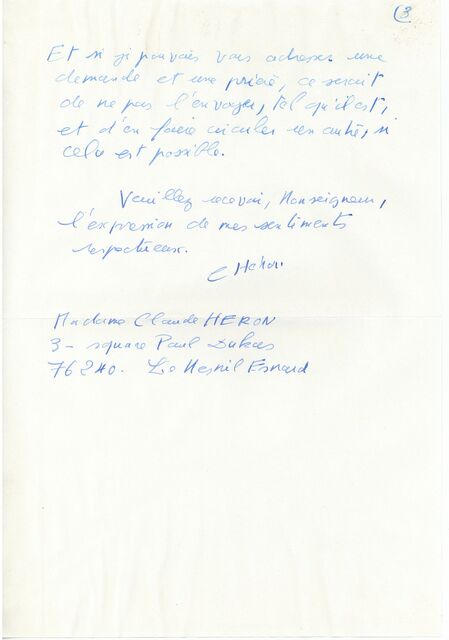 3
Et si je pouvais vous adresser une
demande et une prière, ce serait
de ne pas l'envoyer, tel qu'il est,
et d'en faire circuler un autre, si
cela est possible.
Veuillez recevoir, Monseigneur,
l'expression de mes sentiments
respectueux.
C Héron
Madame Claude HERON
3 - square Paul Dukas
76240. Le Mesnil Esnard